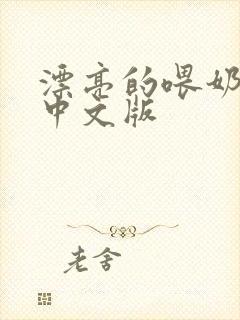 漂亮的喂奶
中文版
老舍